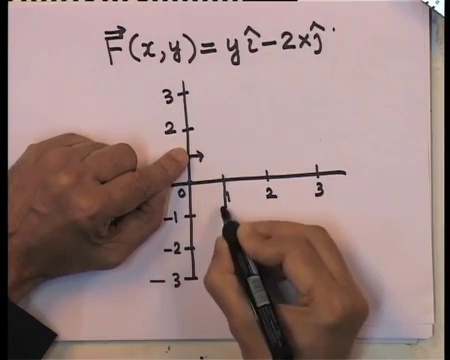 F⃗(x,y) = yî − 2xĵ
3
2
0 1 2 3
-1
-2
-3